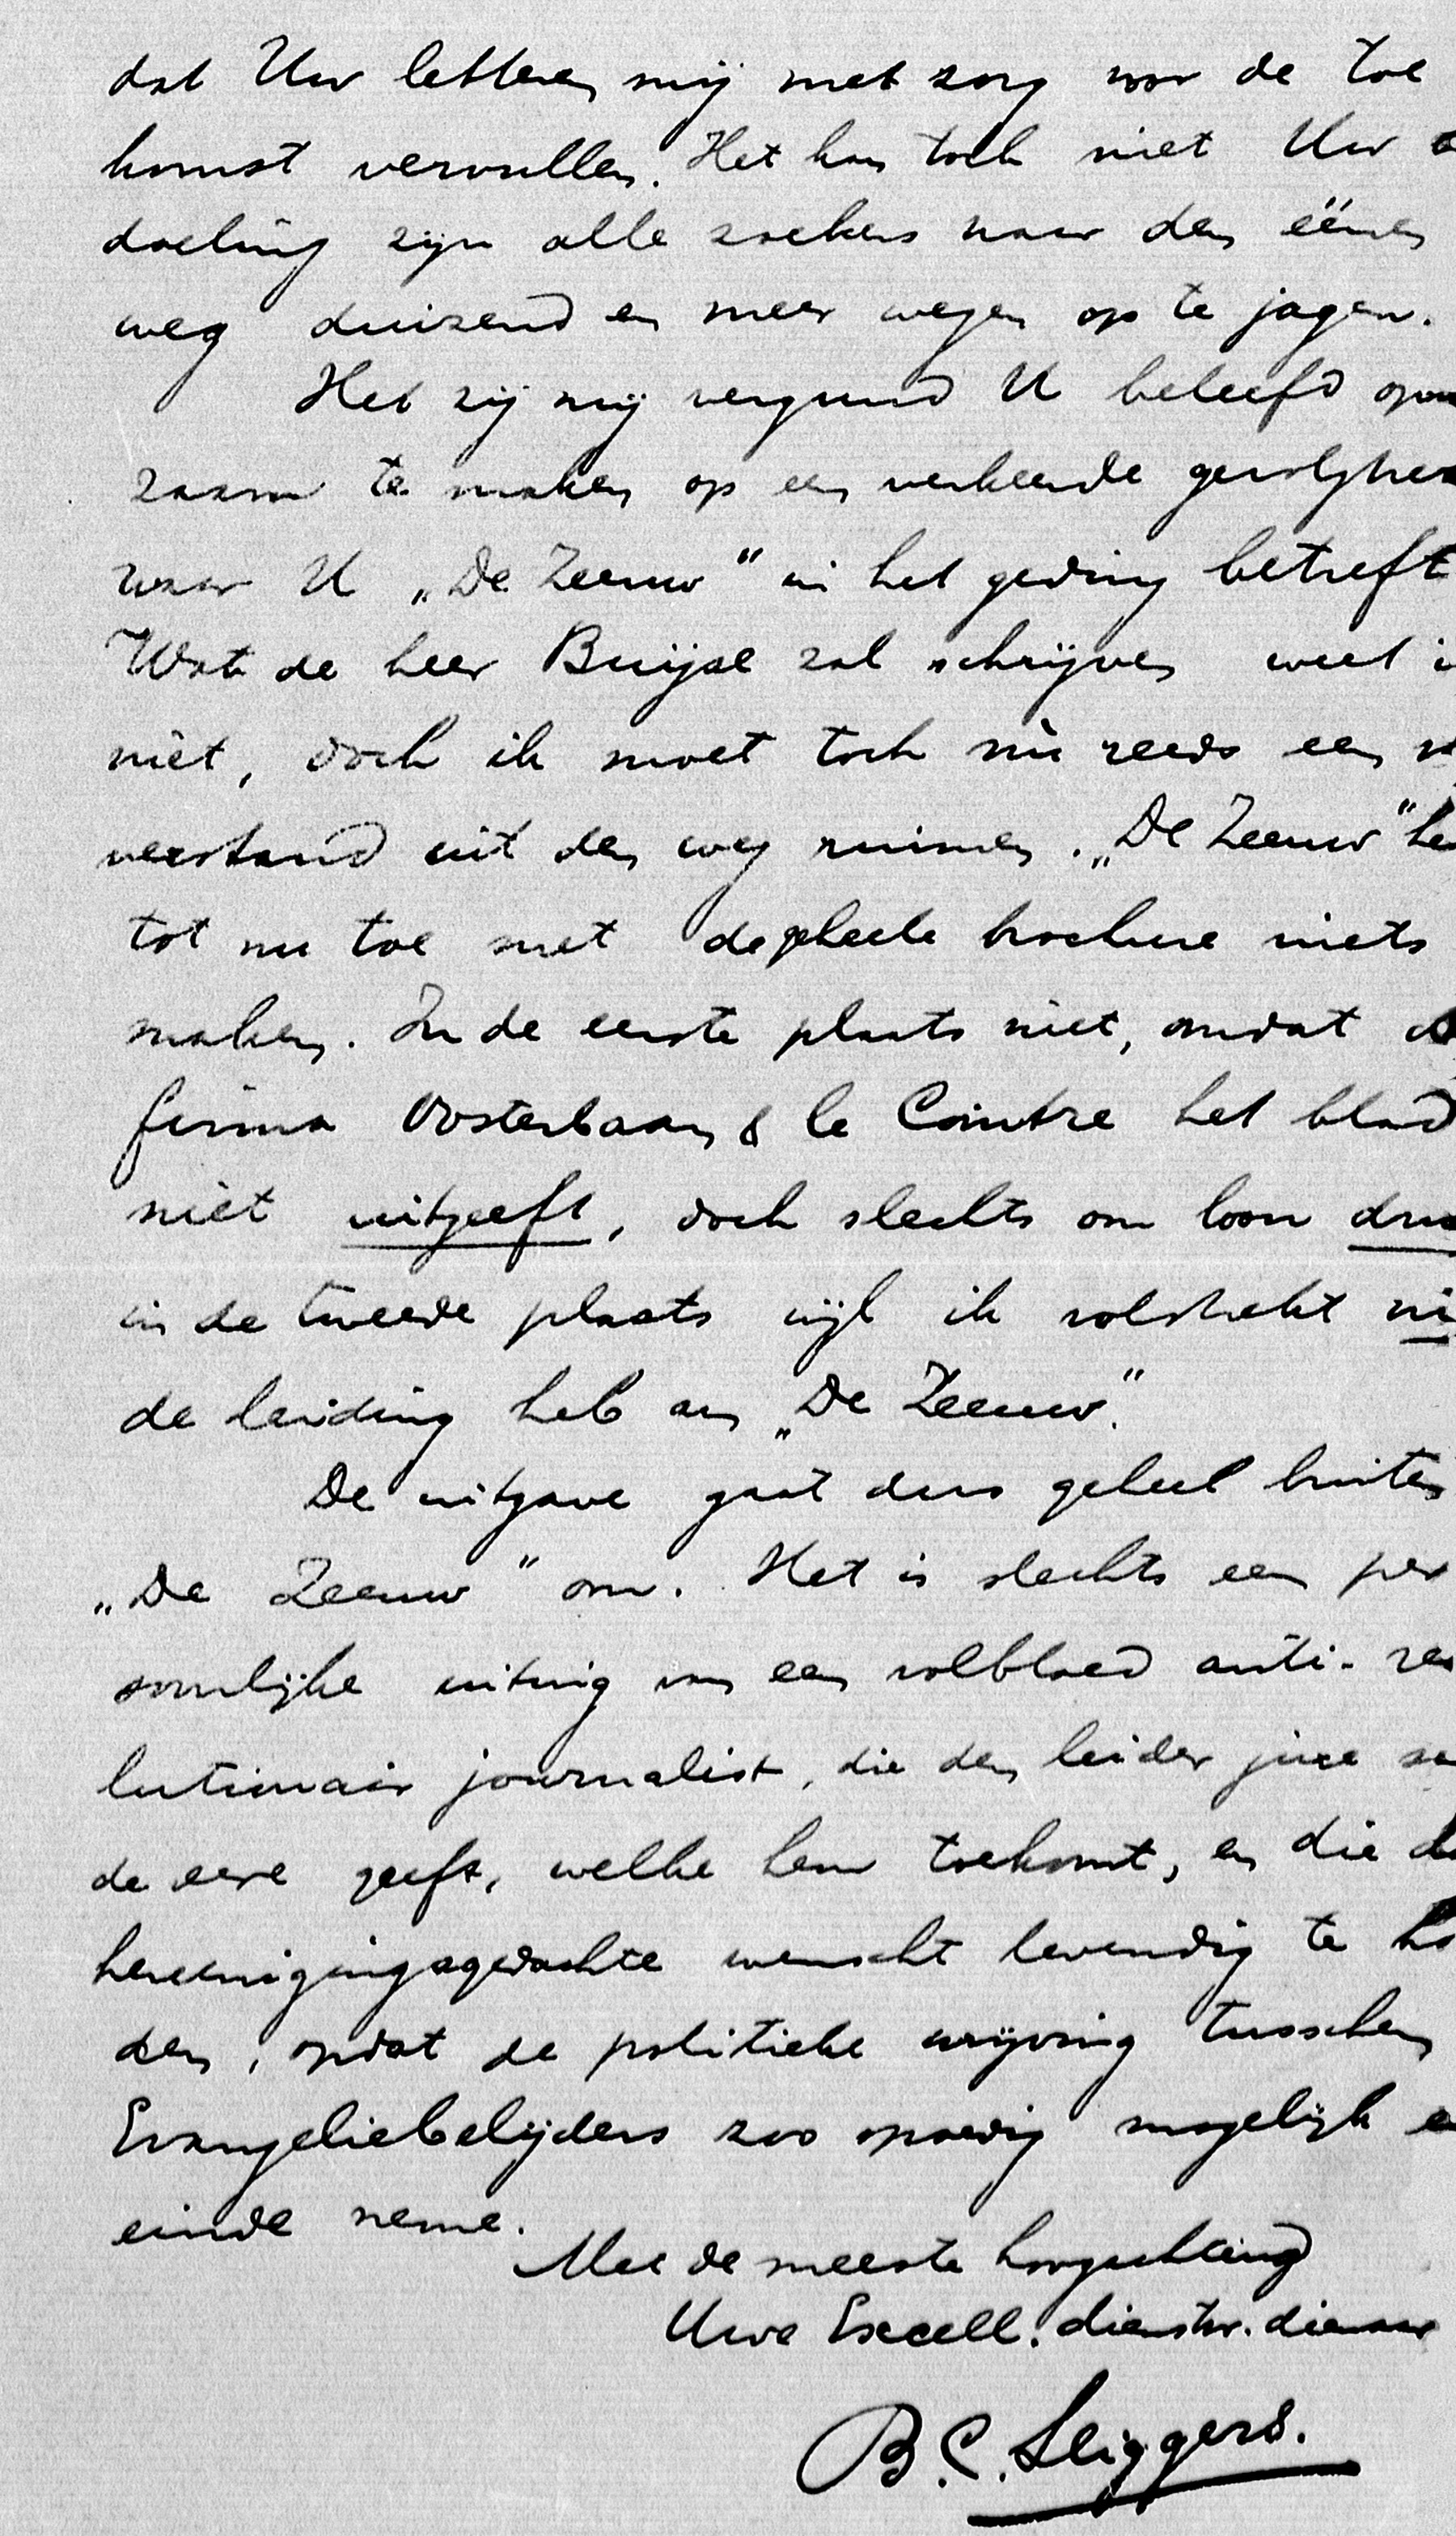 dat Uw letteren mij met zorg voor de toe
komst vervullen. Het kan toch niet Uw
doeling zijn alle zoekers naar den éénen
weg duizend en meer wegen op te jagen.
Het zij mij vergund U beleefd opm
zaam te maken op een verkeerde gevolgtrek
waar U „De Zeeuw" in het geding betreft
Wat de heer Buijse zal schrijven weet i
niet, doch ik moet toch nù reeds een
verstand uit den weg ruimen. „De Zeeuw" he
tot nu toe met de geheele brochure niets
maken. In de eerste plaats niet, omdat d
firma Oosterbaan & le Cointre het blad
niet uitgeeft, doch slechts om loon dru
in de tweede plaats wijl ik volstrekt ni
de leiding heb aan „De Zeeuw".
De uitgave gaat dus geheel buiten
„De Zeeuw" om. Het is slechts een per
soonlijke uiting van een volbloed anti-rev
lutionair journalist, die den leider jure su
de eere geeft, welke hem toekomt, en die d
hereenigingsgedachte wenscht levendig te ho
den, opdat de politieke wrijving tusschen
Evangeliebelijders zoo spoedig mogelijk e
einde neme.
Met de meeste hoogachting
Uwe Excell. dienstw. dienaar
B.C. Sliggers.